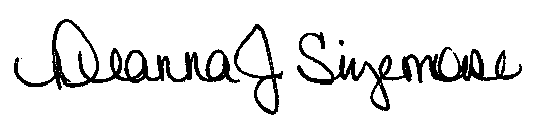 Deanna J Sizemore